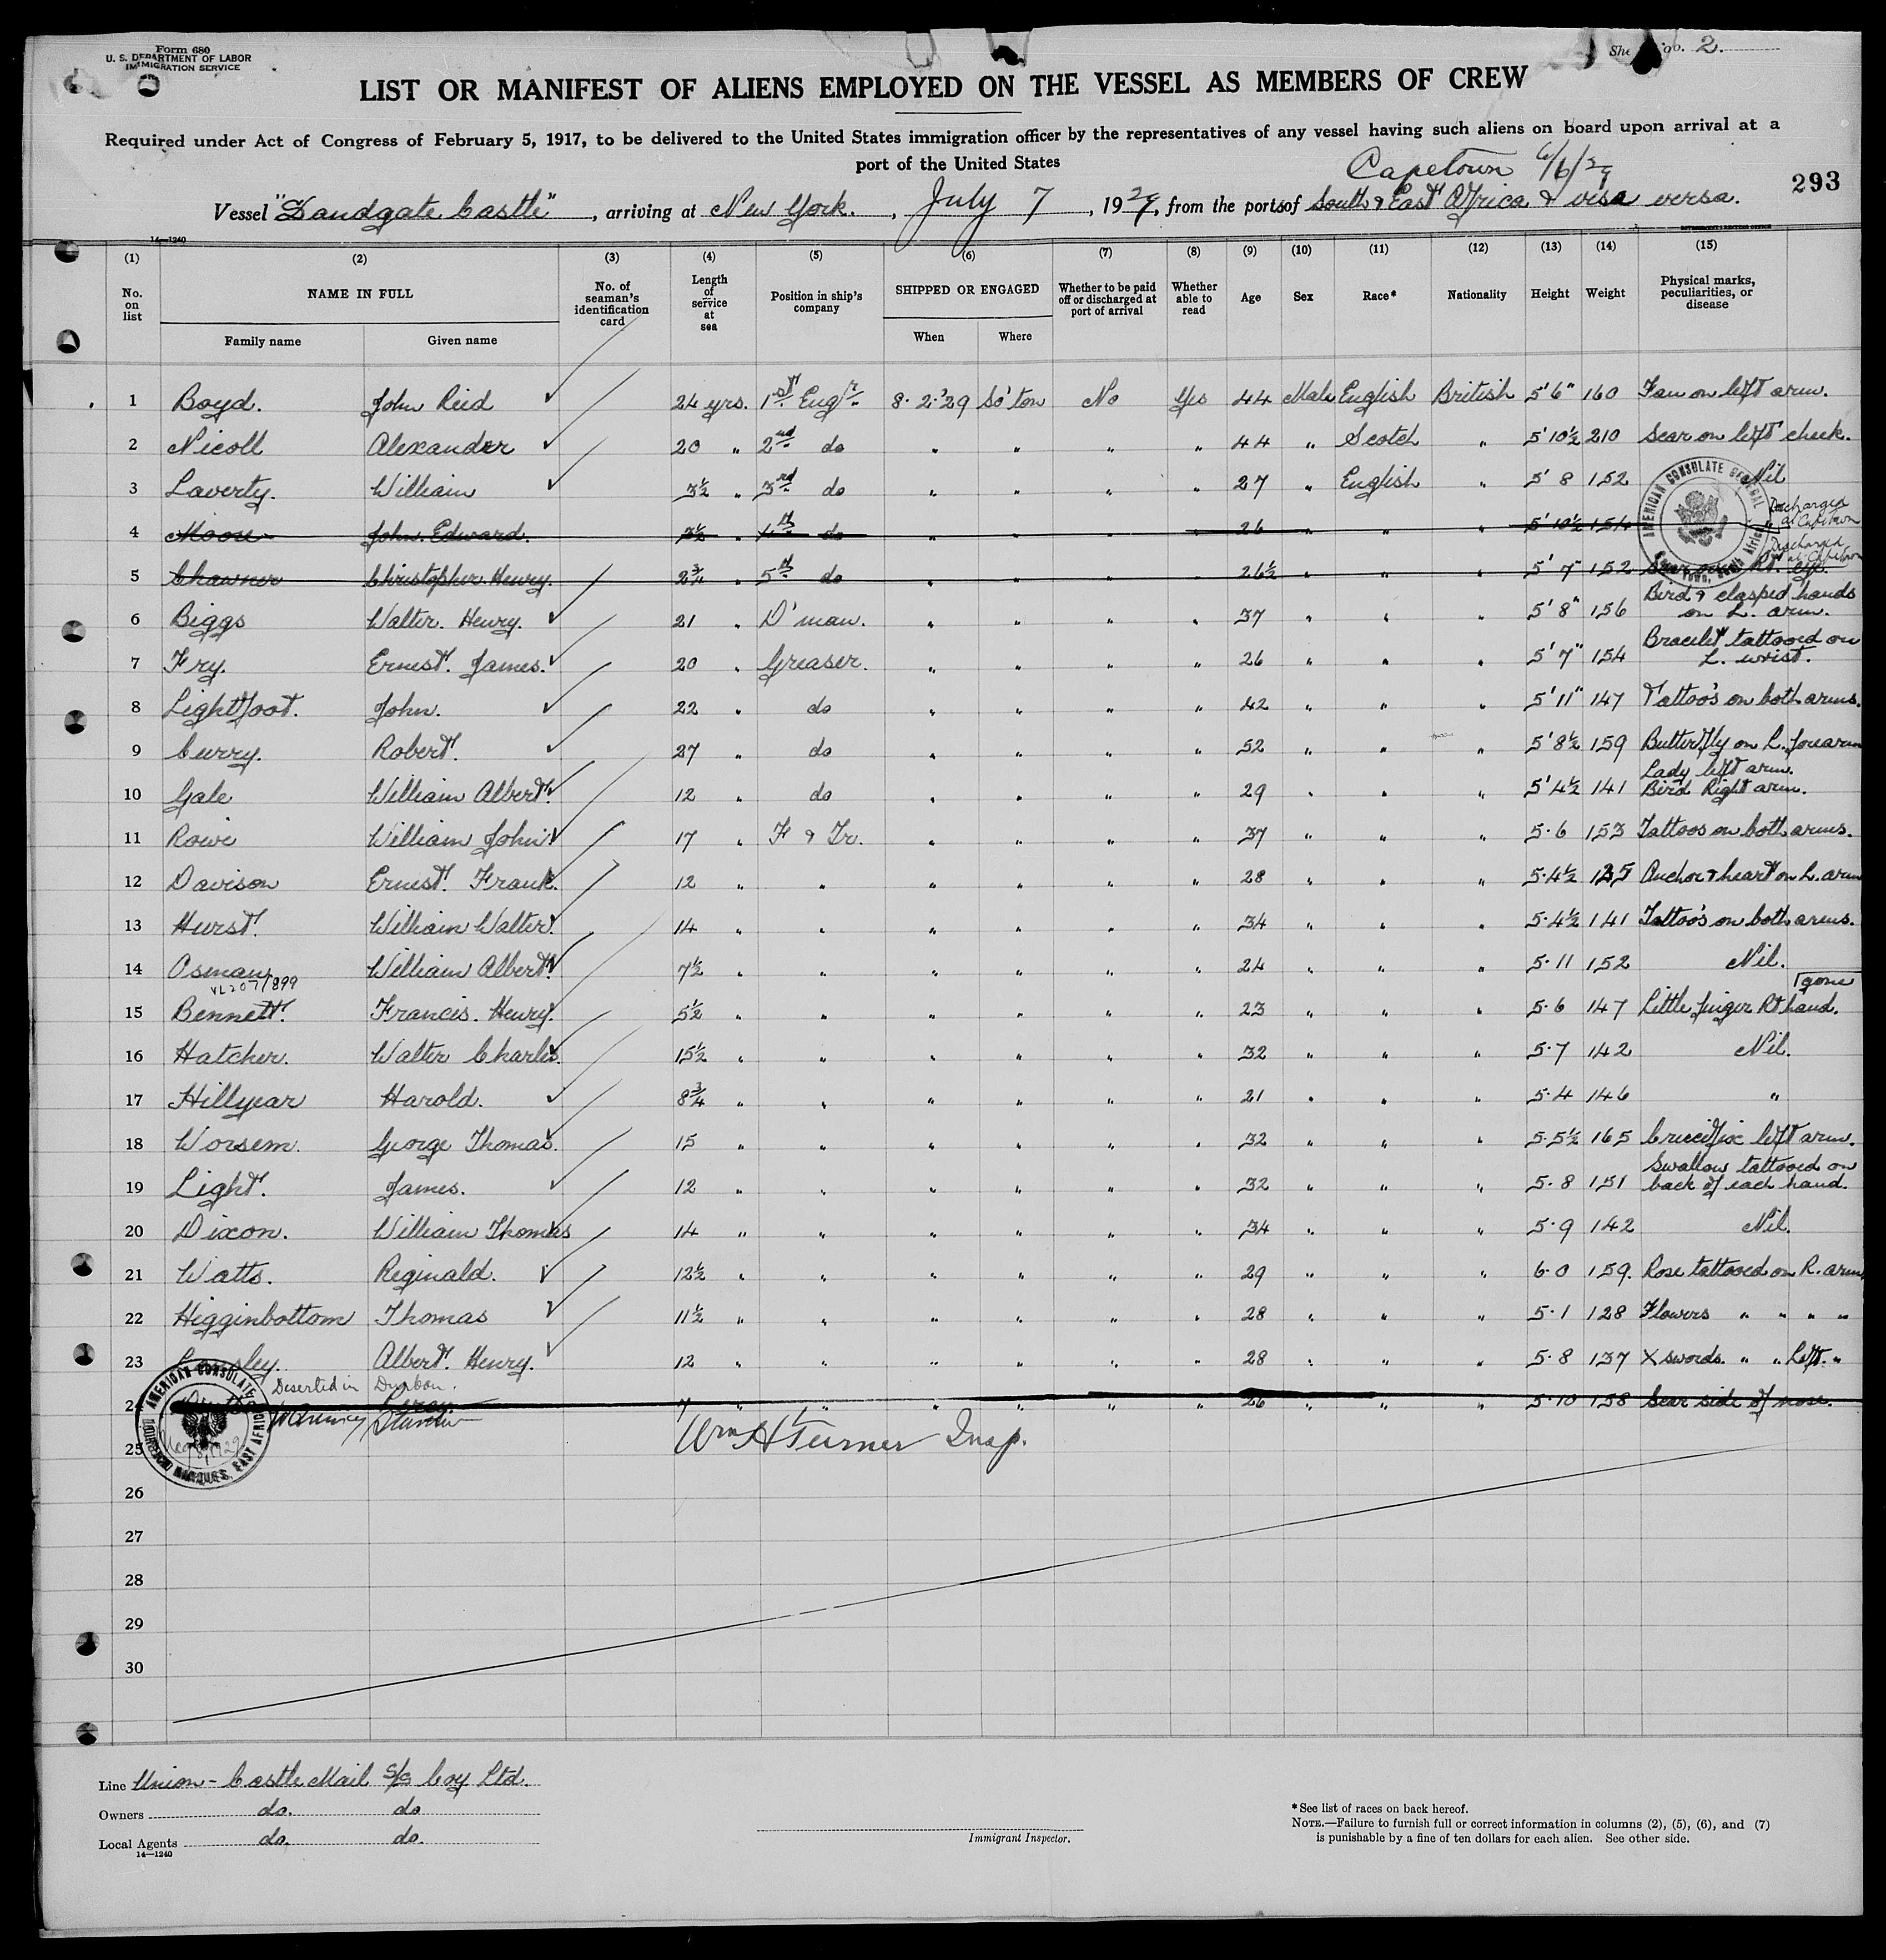 Form 680
U. S. DEPARTMENT OF LABOR
IMMIGRATION SERVICE
No. 2.
LIST OR MANIFEST OF ALIENS EMPLOYED ON THE VESSEL AS MEMBERS OF CREW
Required under Act of Congress of February 5, 1917, to be delivered to the United States immigration officer by the representatives of any vessel having such aliens on board upon arrival at a
port of the United States
Capetown 6/6/29
293
Vessel "Sandgate Castle", arriving at New York. , July 7 , 1929, from the ports of South & East Africa & visa versa.
14—1240
(1) (2) (3) (4) (5) (6) (7) (8) (9) (10) (11) (12) (13) (14) (15)
No. on list NAME IN FULL No. of seaman's identification card Length of service at sea Position in ship's company SHIPPED OR ENGAGED Whether to be paid off or discharged at port of arrival Whether able to read Age Sex Race* Nationality Height Weight Physical marks, peculiarities, or disease
Family name Given name When Where
1 Boyd. John Reid 24 yrs. 1st Engr. 8.2.'29 So'ton No Yes 44 Male English British 5'6" 160 Tau on left arm.
2 Nicoll Alexander 20 " 2nd do " " " " 44 " Scotch " 5'10½ 210 Scar on left cheek.
3 Laverty. William 3½ " 3rd do " " " " 27 " English " 5' 8 152 Nil
Discharged at Capetown
4 Moore John Edward. 3½ " 4th do " " " " 26 " " " 5'10½ 154 "
Discharged at Capetown
5 Chawner Christopher Henry. 2¾ " 5th do " " " " 26½ " " " 5' 7" 152 Scar over Rt. eye.
6 Biggs Walter. Henry. 21 " D'man. " " " " 37 " " " 5'8" 156 Bird & clasped hands on L. arm.
7 Fry. Ernest. James. 20 " Greaser. " " " " 26 " " " 5'7" 154 Bracelet tattooed on L. wrist.
8 Lightfoot. John. 22 " do " " " " 42 " " " 5'11" 147 Tattoo's on both arms.
9 Curry. Robert. 27 " do " " " " 52 " " " 5'8½ 159 Butterfly on L. forearm
10 Gale William Albert. 12 " do " " " " 29 " " " 5'4½ 141 Lady left arm. Bird Right arm.
11 Rowe William John 17 " F & Tr. " " " " 37 " " " 5.6 153 Tattoos on both arms.
12 Davison Ernest. Frank. 12 " " " " " " 28 " " " 5.4½ 135 Anchor & heart on L. arm
13 Hurst. William Walter. 14 " " " " " " 34 " " " 5.4½ 141 Tattoo's on both arms.
14 Osman William Albert. 7½ " " " " " " 24 " " " 5.11 152 Nil.
VL207/899
gone
15 Bennett. Francis. Henry. 5½ " " " " " " 23 " " " 5.6 147 Little finger Rt hand.
16 Hatcher. Walter Charles. 15½ " " " " " " 32 " " " 5.7 142 Nil.
17 Hillyear Harold. 8¾ " " " " " " 21 " " " 5.4 146 "
18 Worsem. George Thomas. 15 " " " " " " 32 " " " 5.5½ 165 Crucifix left arm.
19 Light. James. 12 " " " " " " 32 " " " 5.8 151 Swallow tattooed on back of each hand.
20 Dixon. William Thomas 14 " " " " " " 34 " " " 5.9 142 Nil.
21 Watts. Reginald. 12½ " " " " " " 29 " " " 6.0 159. Rose tattooed on R. arm
22 Higginbottom Thomas 11½ " " " " " " 28 " " " 5.1 128 Flowers " " " "
23 Albert. Henry. 12 " " " " " " 28 " " " 5.8 137 X swords. " " Left. "
Deserted in Durban.
24 7 " " " " " " 26 " " " 5.10 158 Scar side of nose.
25 Wm H Turner Insp.
26
27
28
29
30
AMERICAN CONSULATE GENERAL
AMERICAN CONSULATE
LOURENCO MARQUES, EAST AFRICA
Line Union-Castle Mail S/S Coy Ltd.
Owners do. do
Local Agents do. do.
14—1240
Immigrant Inspector.
* See list of races on back hereof.
NOTE.—Failure to furnish full or correct information in columns (2), (5), (6), and (7)
is punishable by a fine of ten dollars for each alien. See other side.